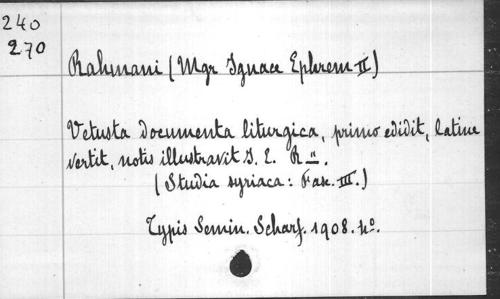 240
270
Rahmani (Mgr Ignace Ephrem II)
Vetusta documenta liturgica, primo edidit, latine
vertit, notis illustravit I. E. R ".
(Studia syriaca: Fasc. III.)
Typis Semin. Scharf. 1908. 4o.